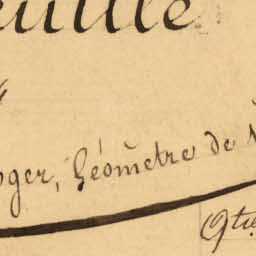 euille
oger, Géomètre de